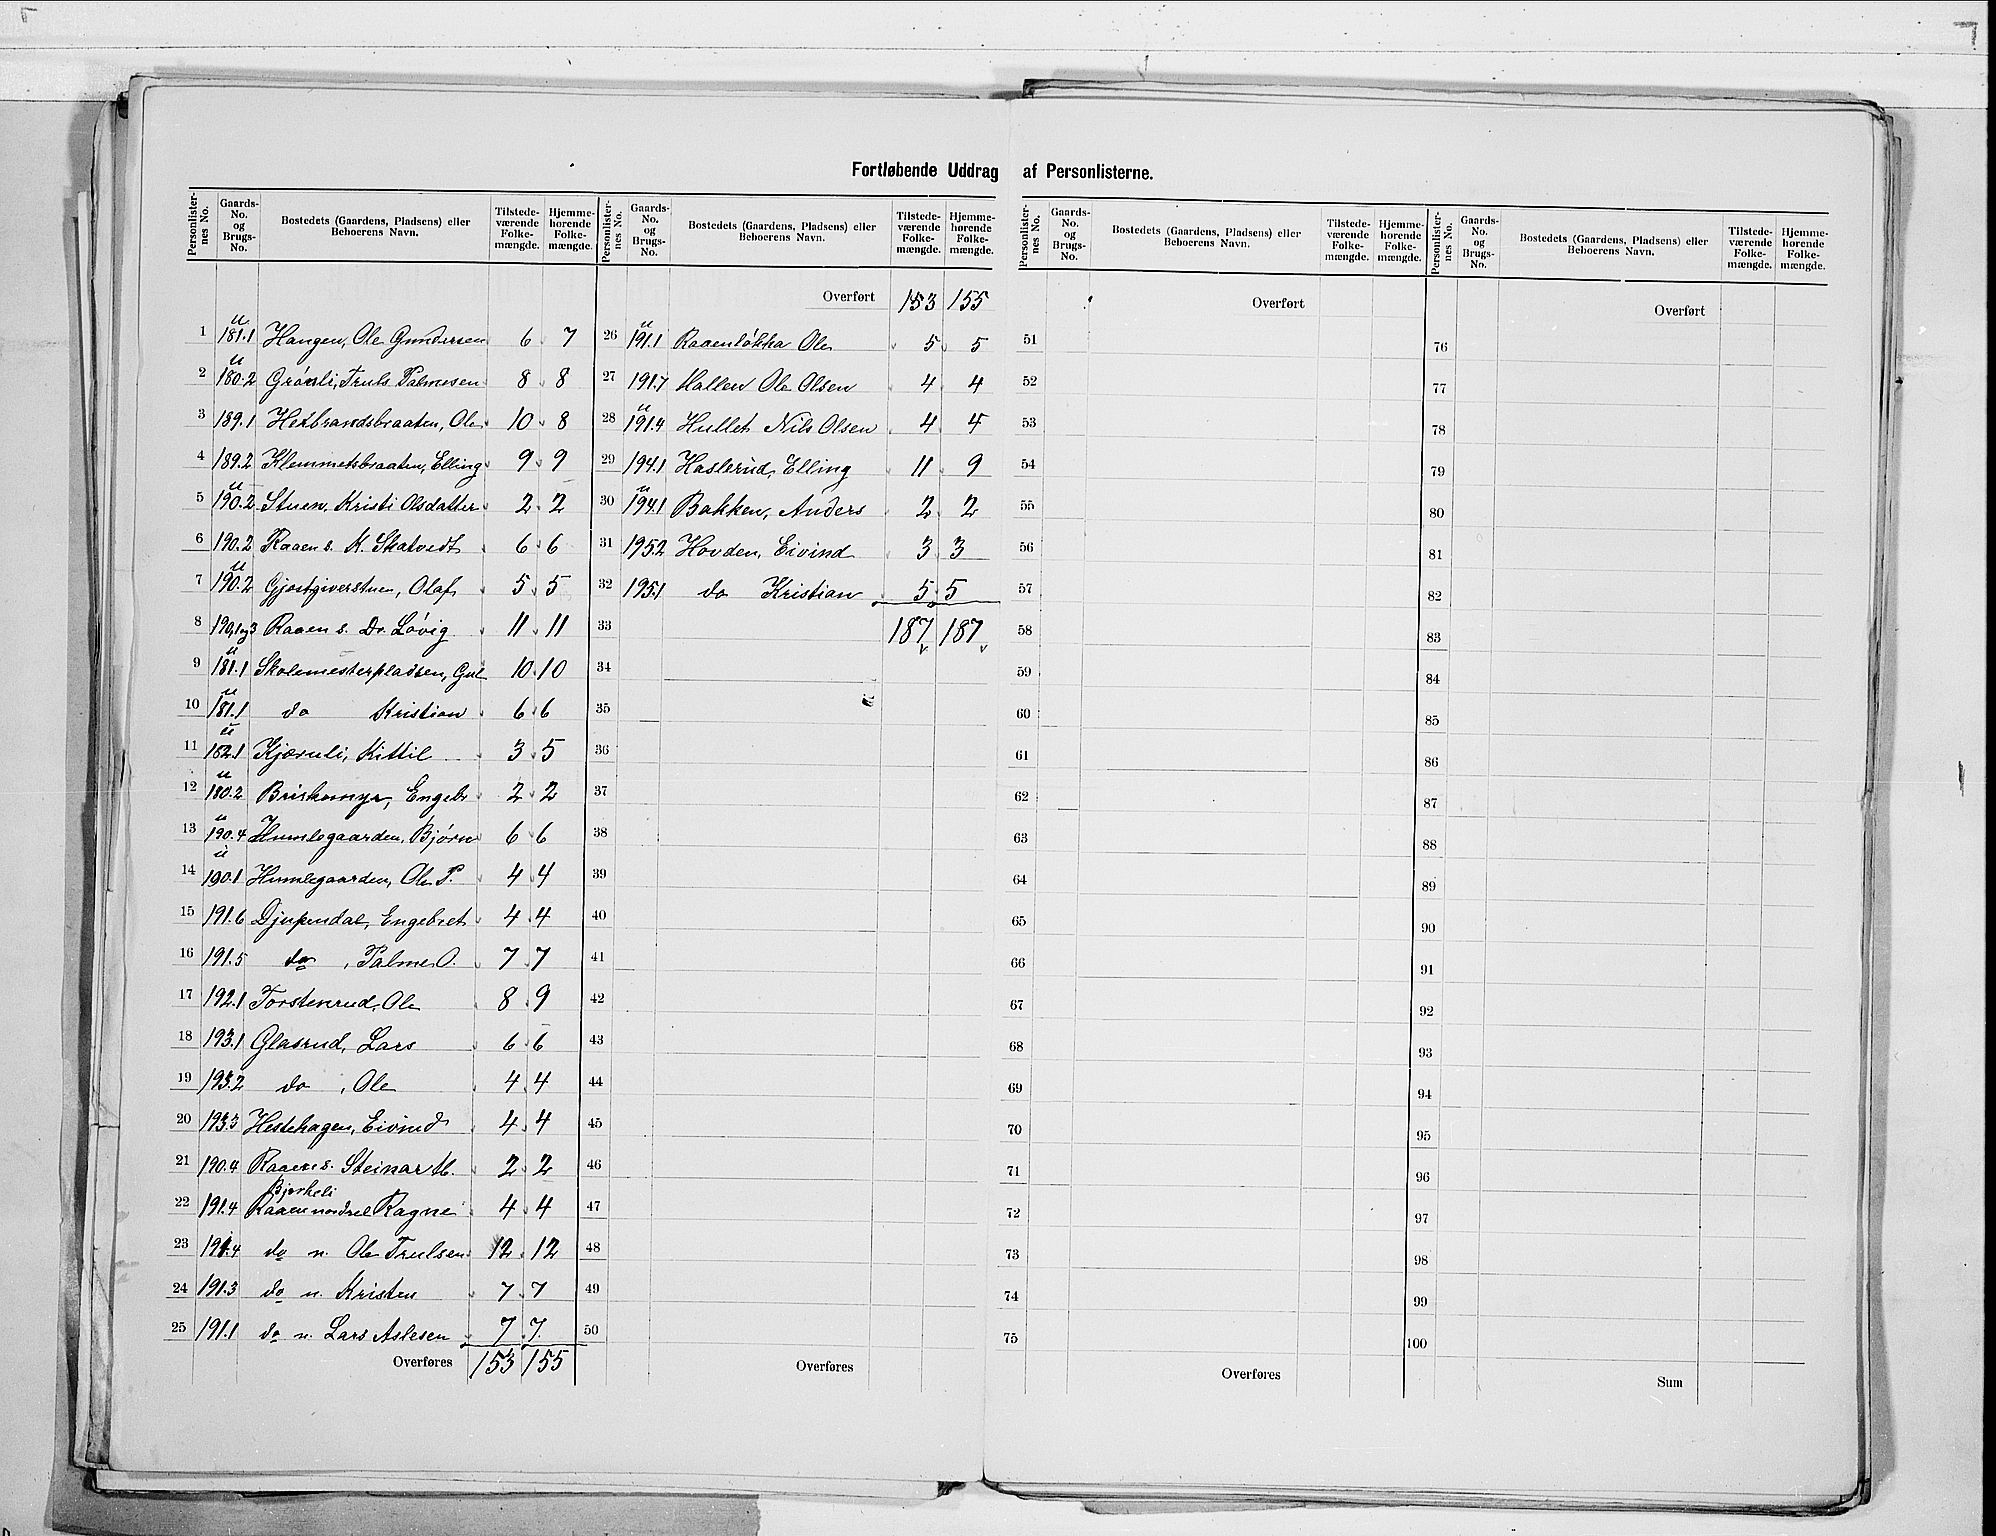 Fortløbende Uddrag af Personlisterne.
Personlister-nes No. Gaards-No. og Brugs-No. Bostedets (Gaardens, Pladsens) eller Beboerens Navn. Tilstede-værende Folke-mængde. Hjemme-hørende Folke-mængde.
1 u 181.1 Haugen, Ole Gundersen 6 7
2 u 180.2 Grønli, Truls Palmesen 8 8
3 189.1 Herbrandsbraaten, Ole 10 8
4 189.2 Klemmetsbraaten, Elling 9 9
5 u 190.2 Stuen, Kristi Olsdatter 2 2
6 190.2 Raaen s. K. Skatvedt 6 6
7 u 190.2 Gjæstgiverstuen, Olaf 5 5
8 190,1og3 Raaen s. Dr. Løvig 11 11
9 u 181.1 Skolemesterpladsen, Gul 10 10
10 u 181.1 do Kristian 6 6
11 u 182.1 Kjærnli, Kittil 3 5
12 u 180.2 Briskemyr, Engebr 2 2
13 u 190.4 Humlegaarden, Bjørn 6 6
14 u 190.1 Humlegaarden, Ole P. 4 4
15 191.6 Djupendal, Engebret 4 4
16 191.5 do, Palme O. 7 7
17 192.1 Torstenrud, Ole 8 9
18 193.1 Glasrud, Lars 6 6
19 193.2 do, Ole 4 4
20 193.3 Hestehagen, Eivind 4 4
21 190.4 Raaen s. Steinar M. 2 2
Bjerkeli
22 191.4 Raaen nordre Ragne 4 4
23 191.4 do n. Ole Trulsen 12 12
24 191.3 do n. Kristen 7 7
25 191.1 do n. Lars Aslesen 7 7
Overføres 153 155
Personlister-nes No. Gaards-No. og Brugs-No. Bostedets (Gaardens, Pladsens) eller Beboerens Navn. Tilstede-værende Folke-mængde. Hjemme-hørende Folke-mængde.
Overført 153 155
26 u 191.1 Raaenløkka Ole 5 5
27 191.7 Hallen Ole Olsen 4 4
28 u 191.4 Hullet Nils Olsen 4 4
29 194.1 Haslerud, Elling 11 9
30 u 194.1 Bakken, Anders 2 2
31 195.2 Hovden, Eivind 3 3
32 195.1 do Kristian 5 5
33 187 187
34
35
36
37
38
39
40
41
42
43
44
45
46
47
48
49
50
Overføres
Personlister-nes No. Gaards-No. og Brugs-No. Bostedets (Gaardens, Pladsens) eller Beboerens Navn. Tilstede-værende Folke-mængde. Hjemme-hørende Folke-mængde.
Overført
51
52
53
54
55
56
57
58
59
60
61
62
63
64
65
66
67
68
69
70
71
72
73
74
75
Overføres
Personlister-nes No. Gaards-No. og Brugs-No. Bostedets (Gaardens, Pladsens) eller Beboerens Navn. Tilstede-værende Folke-mængde. Hjemme-hørende Folke-mængde.
Overført
76
77
78
79
80
81
82
83
84
85
86
87
88
89
90
91
92
93
94
95
96
97
98
99
100
Sum